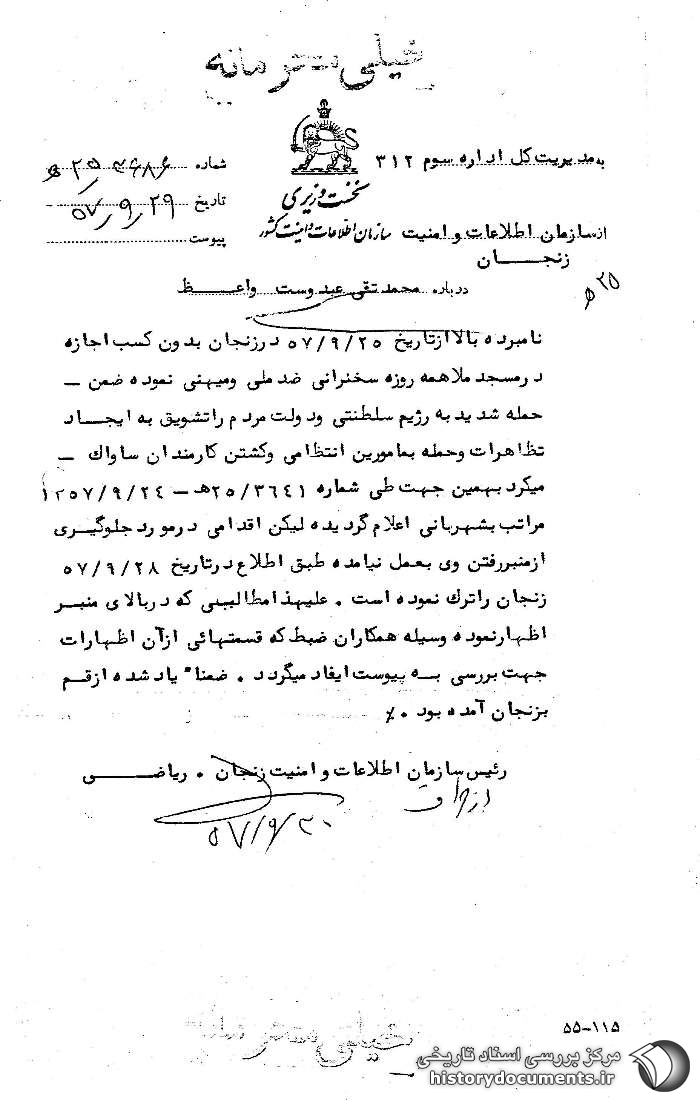 خیلی محرمانه
به مدیریت کل اداره سوم ۳۱۲
شماره ۲۵/۳۶۸۶ ه
نخست وزیری
تاریخ ۵۷/۹/۲۹
از سازمان اطلاعات و امنیت
سازمان اطلاعات و امنیت کشور
پیوست
زنجان
۲۵ ه
درباره محمد تقی عبدوست واعظ
نامبرده بالا از تاریخ ۵۷/۹/۲۵ در زنجان بدون کسب اجازه
در مسجد ملا همه روزه سخنرانی ضد ملی و میهنی نموده ضمن –
حمله شدید به رژیم سلطنتی و دولت مردم را تشویق به ایجاد
تظاهرات و حمله بمامورین انتظامی و کشتن کارمندان ساواک –
میکرد بهمین جهت طی شماره ۲۵/۳۶۴۱ه – ۱۳۵۷/۹/۲۴
مراتب بشهربانی اعلام گردیده لیکن اقدامی در مورد جلوگیری
از منبر رفتن وی بعمل نیامده طبق اطلاع در تاریخ ۵۷/۹/۲۸
زنجان را ترک نموده است . علیهذا مطالبیی که در بالای منبر
اظهار نموده وسیله همکاران ضبط که قسمتهائی از آن اظهارات
جهت بررسی به پیوست ایفاد میگردد . ضمناً یاد شده از قم
بزنجان آمده بود .٪
رئیس سازمان اطلاعات و امنیت زنجان . ریاضی
۵۷/۹/۳۰
۵۵-۱۱۵
خیلی محرمانه
مرکز بررسی اسناد تاریخی
historydocuments.ir